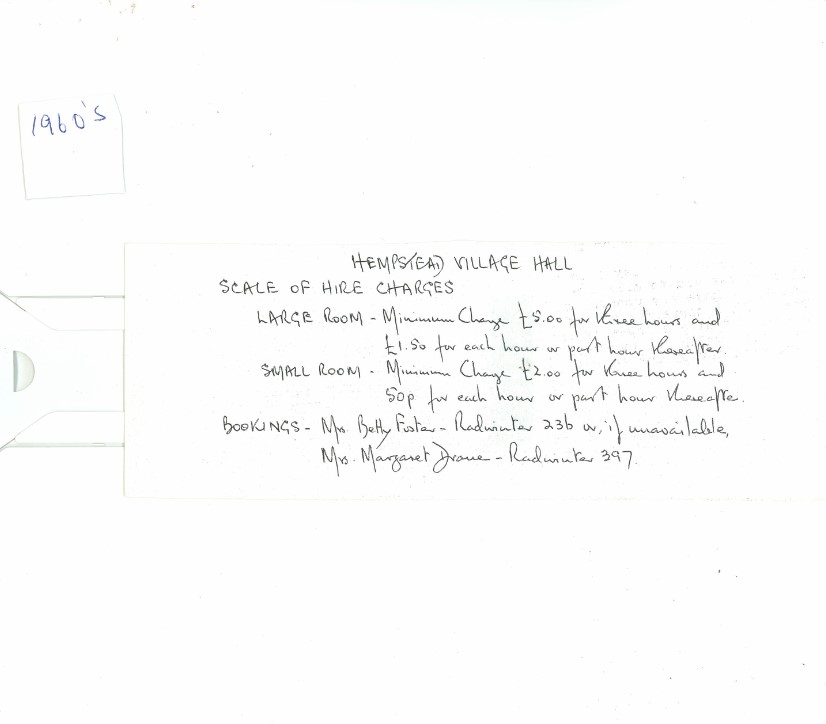 1960's
HEMPSTEAD VILLAGE HALL
SCALE OF HIRE CHARGES
LARGE ROOM - Minimum Charge £5.00 for three hours and
£1.50 for each hour or part hour thereafter.
SMALL ROOM - Minimum Charge £2.00 for three hours and
50p for each hour or part hour thereafter.
BOOKINGS - Mrs. Betty Foster - Radwinter 236 or, if unavailable,
Mrs. Margaret Drane - Radwinter 397.